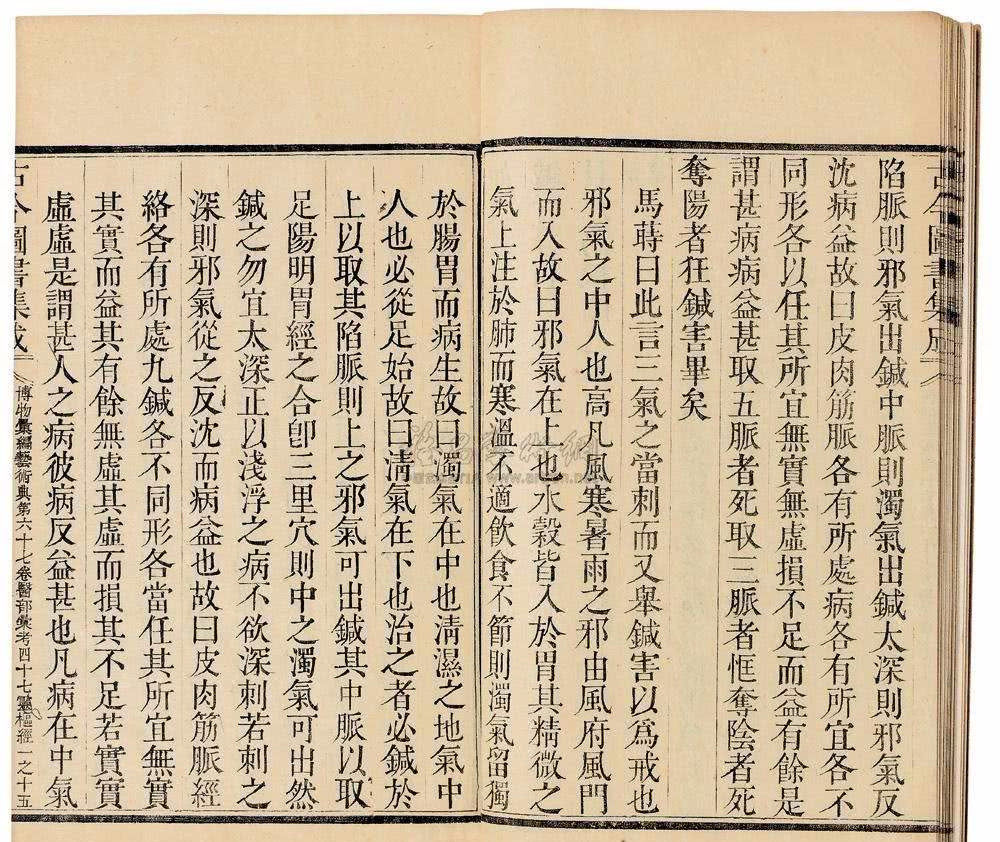 古今圖書集成
陷脈則邪氣出鍼中脈則濁氣出鍼太深則邪氣反
沈病益故曰皮肉筋脈各有所處病各有所宜各不
同形各以任其所宜無實無虛損不足而益有餘是
謂甚病病益甚取五脈者死取三脈者恇奪陰者死
奪陽者狂鍼害畢矣
馬蒔曰此言三氣之當刺而又舉鍼害以爲戒也
邪氣之中人也高凡風寒暑雨之邪由風府風門
而入故曰邪氣在上也水穀皆入於胃其精微之
氣上注於肺而寒溫不適飲食不節則濁氣留獨
於腸胃而病生故曰濁氣在中也淸濕之地氣中
人也必從足始故曰淸氣在下也治之者必鍼於
上以取其陷脈則上之邪氣可出鍼其中脈以取
足陽明胃經之合卽三里穴則中之濁氣可出然
鍼之勿宜太深正以淺浮之病不欲深刺若刺之
深則邪氣從之反沈而病益也故曰皮肉筋脈經
絡各有所處九鍼各不同形各當任其所宜無實
其實而益其有餘無虛其虛而損其不足若實實
虛虛是謂甚人之病彼病反益甚也凡病在中氣
古今圖書集成
博物彙編藝術典第六十七卷醫部彙考四十七靈樞經一之十五